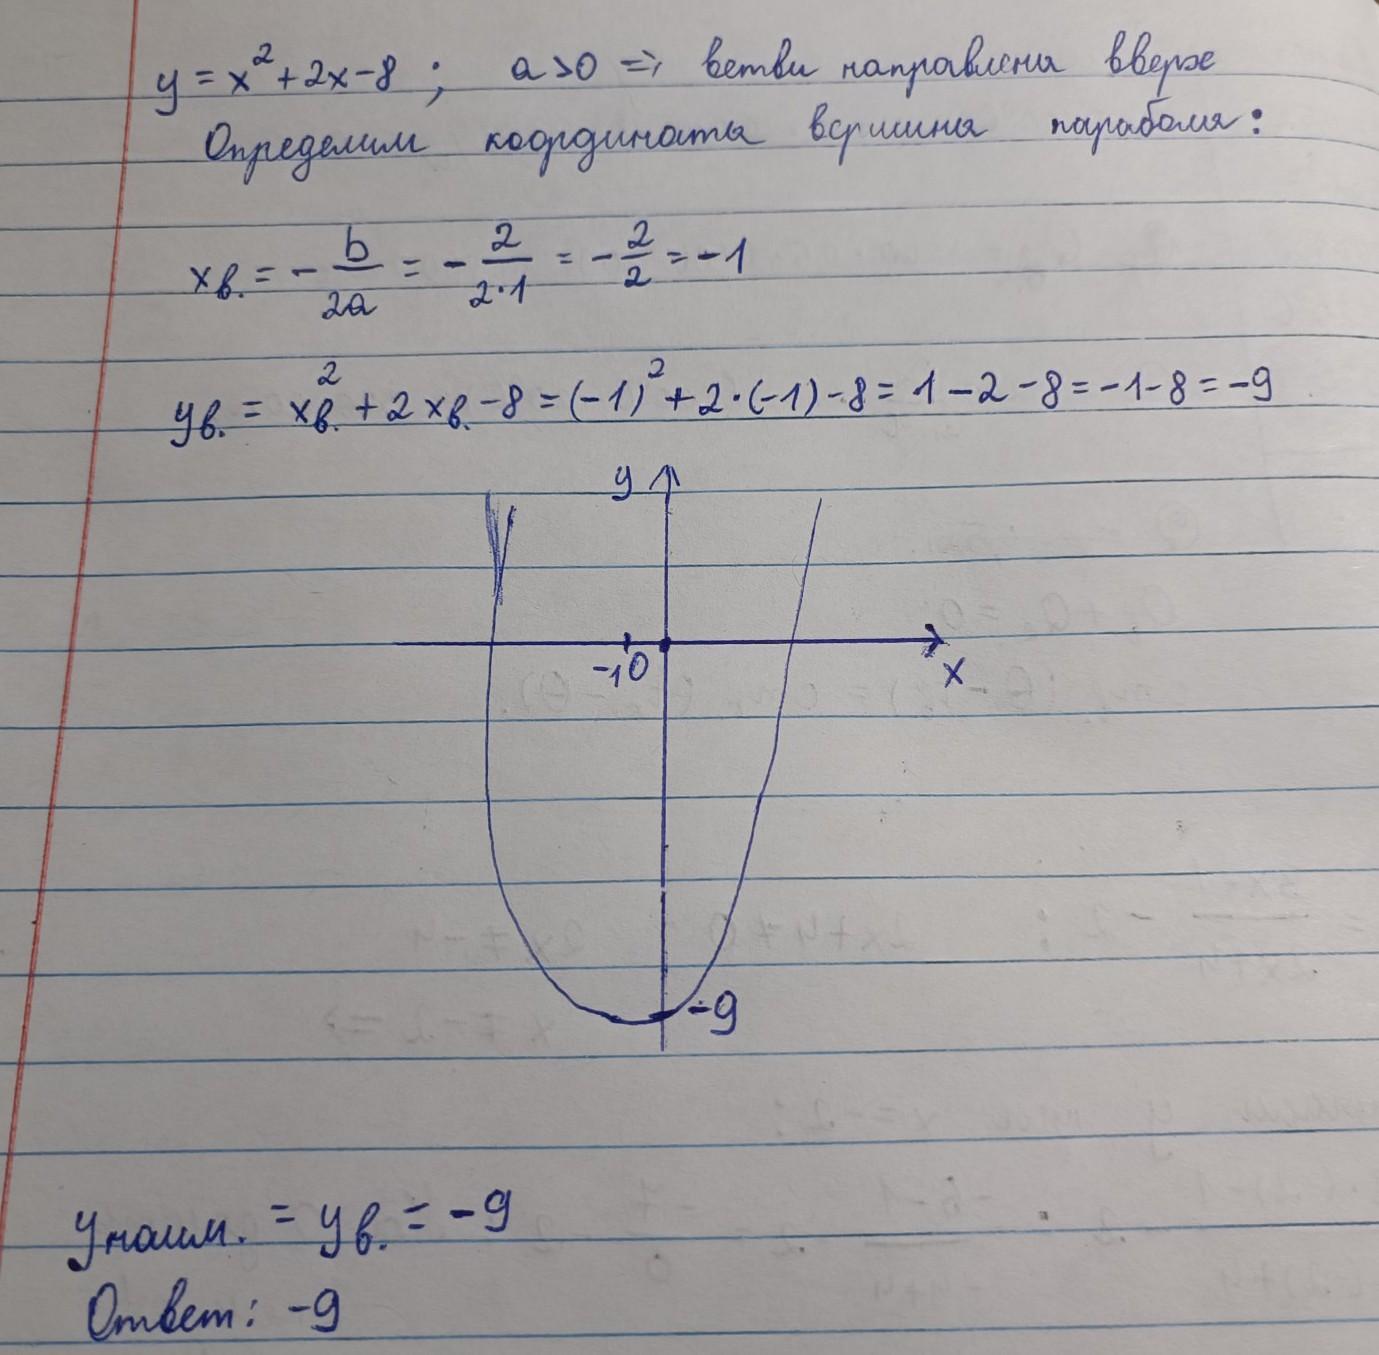 y = x² + 2x - 8 ; a > 0 ⇒ ветви направлены вверх
Определим координаты вершины параболы:
xв. = - b/2a = - 2/2·1 = - 2/2 = -1
yв. = xв.² + 2xв. - 8 = (-1)² + 2·(-1) - 8 = 1 - 2 - 8 = -1 - 8 = -9
y
-1 0
x
-9
yнаим. = yв. = -9
Ответ: -9